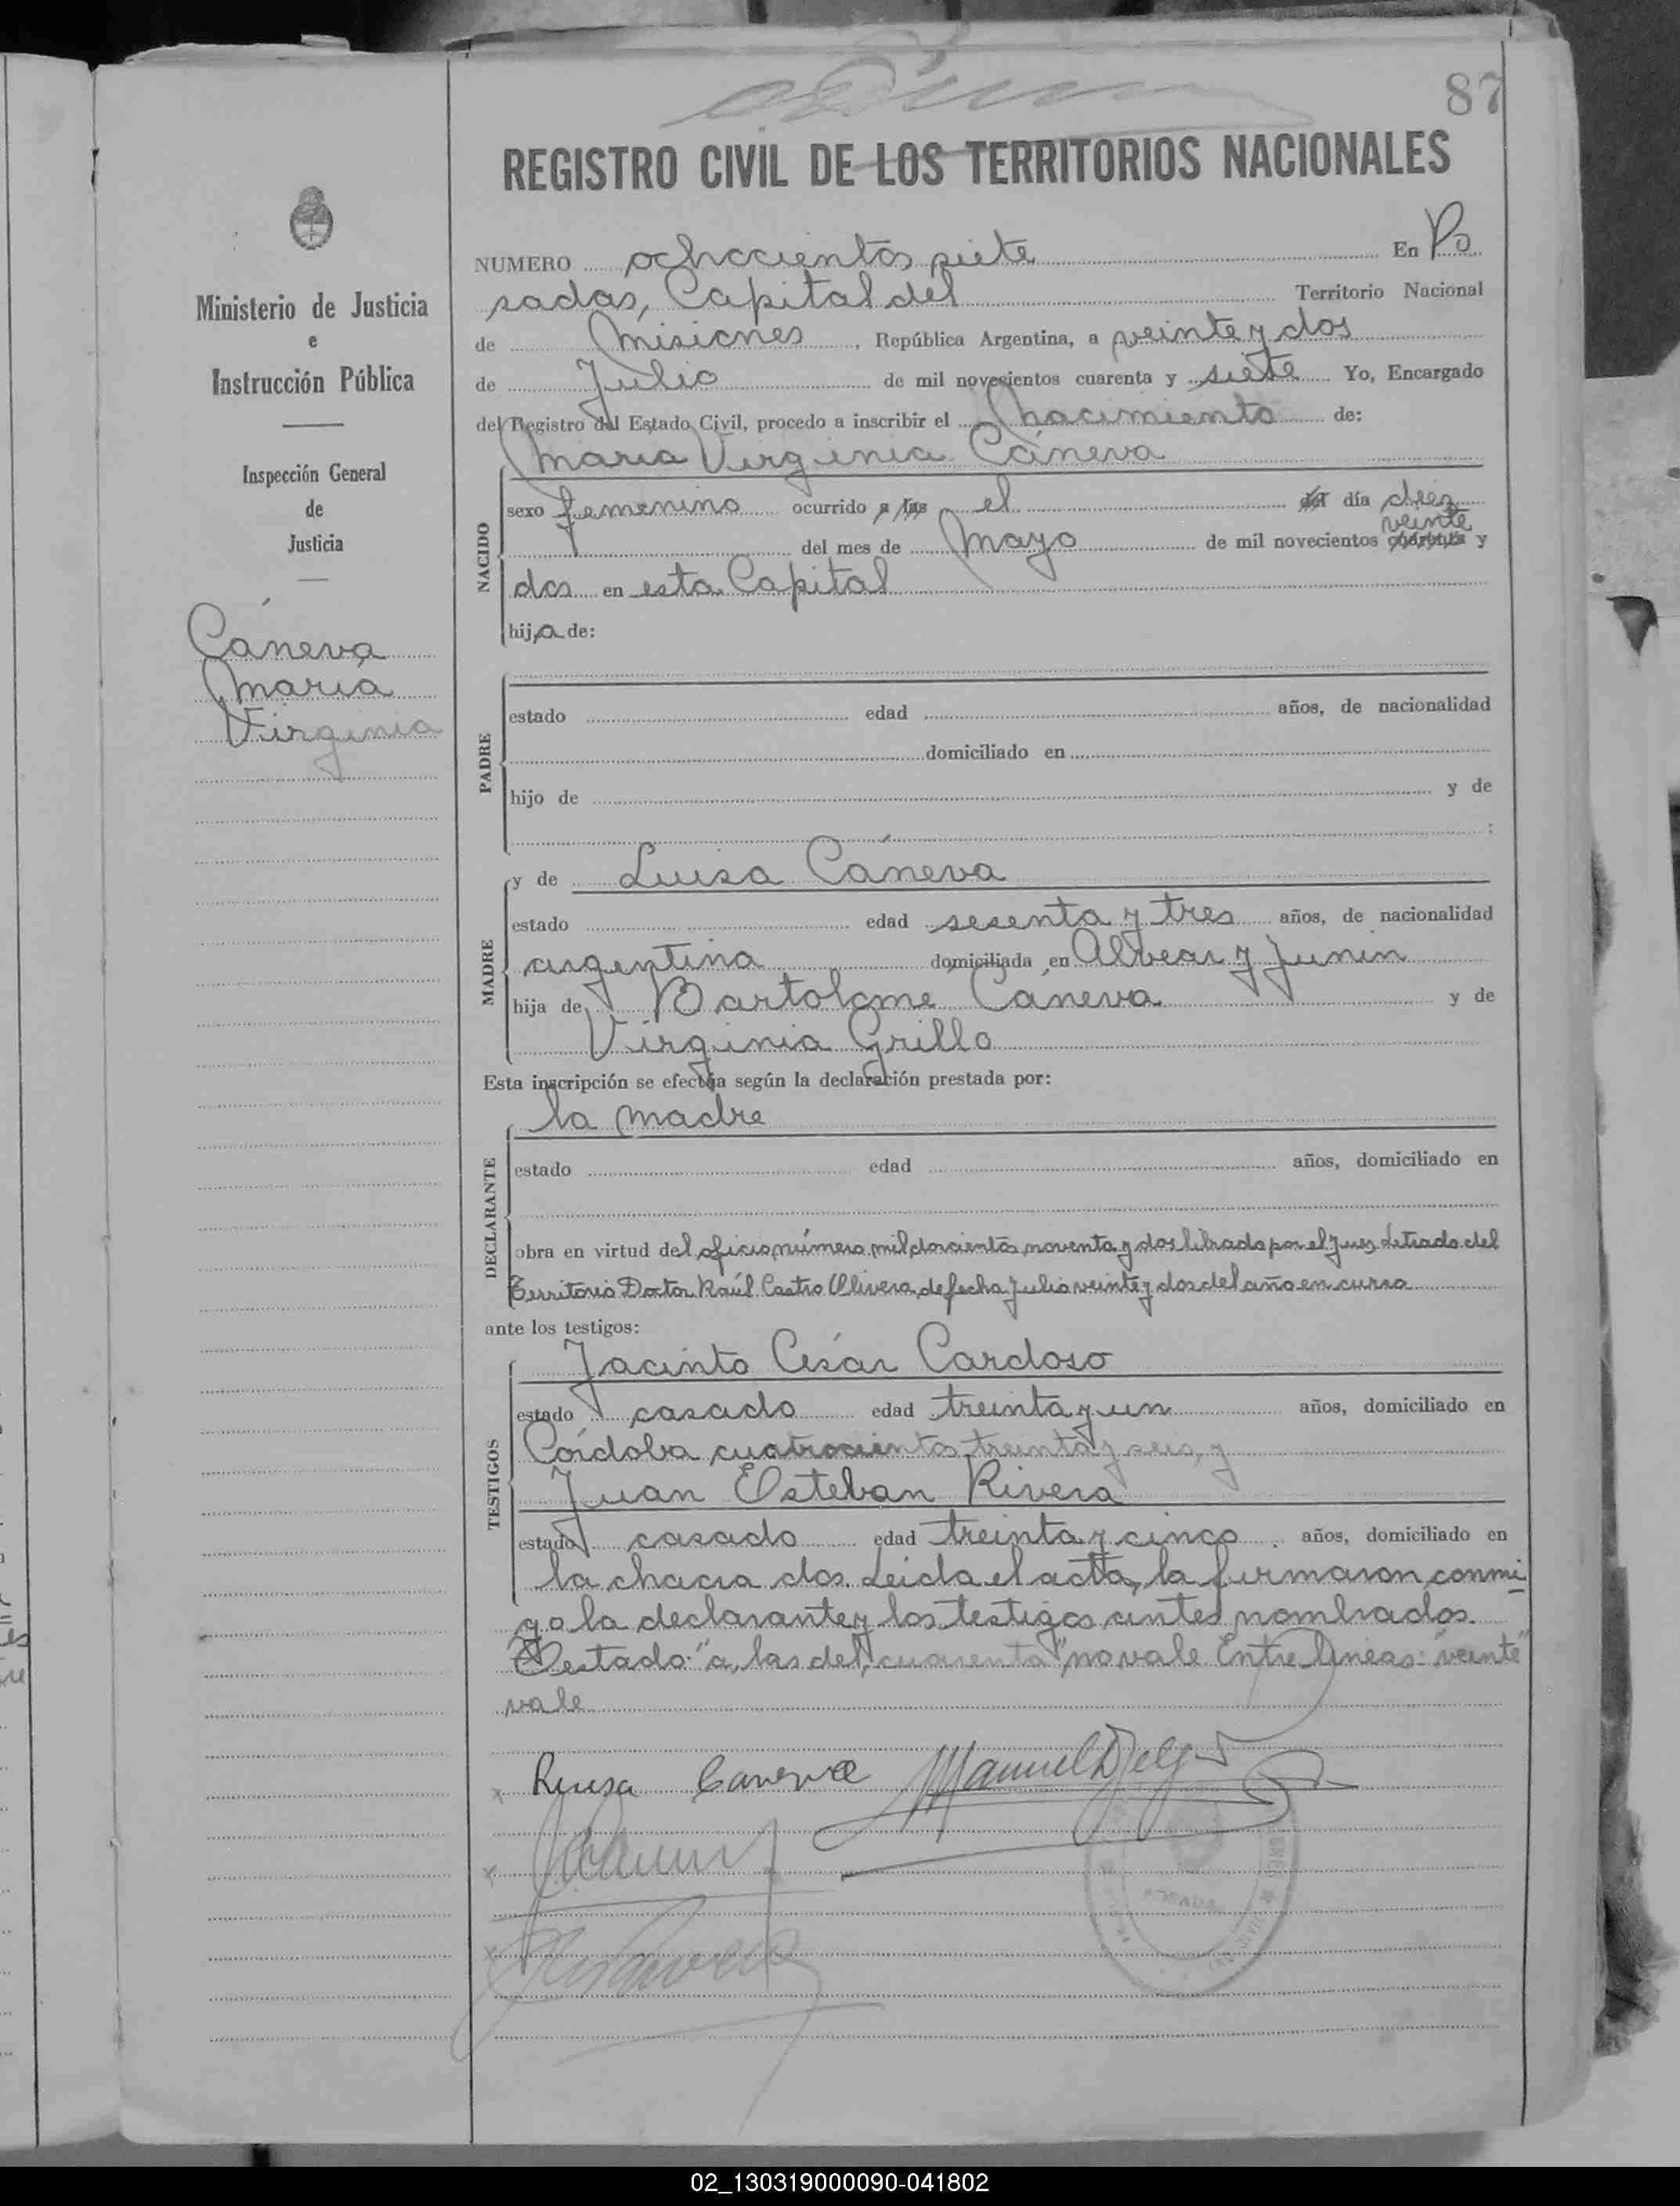 87
REGISTRO CIVIL DE LOS TERRITORIOS NACIONALES
Ministerio de Justicia
e
Instrucción Pública
Inspección General
de
Justicia
Cáneva
María
Virginia
NUMERO ochocientos siete En Po
sadas, Capital del Territorio Nacional
de Misiones, República Argentina, a veinte y dos
de Julio de mil novecientos cuarenta y siete Yo, Encargado
del Registro del Estado Civil, procedo a inscribir el nacimiento de:
María Virginia Cáneva
NACIDO
sexo femenino ocurrido a las el del día diez
veinte
del mes de Mayo de mil novecientos cuarenta y
dos en esta Capital
hija de:
PADRE
estado edad años, de nacionalidad
domiciliado en
hijo de y de
;
y de Luisa Cáneva
MADRE
estado edad sesenta y tres años, de nacionalidad
argentina domiciliada en Alvear y Junin
hija de Bartolome Cáneva y de
Virginia Grillo
Esta inscripción se efectúa según la declaración prestada por:
la madre
DECLARANTE
estado edad años, domiciliado en
obra en virtud del oficio número mil doscientos noventa y dos librado por el Juez Letrado del
Territorio Doctor Raúl Castro Olivera, de fecha Julio veinte y dos del año en curso
ante los testigos:
Jacinto César Cardoso
TESTIGOS
estado casado edad treinta y un años, domiciliado en
Córdoba cuatrocientos treinta y seis, y
Juan Esteban Rivera
estado casado edad treinta y cinco años, domiciliado en
la chacra dos. Leida el acta, la firmaron conmi
go la declarante y los testigos antes nombrados.
Testado: "a, las del, cuarenta" no vale. Entre líneas: "veinte"
vale
Luisa Caneva
02_130319000090-041802